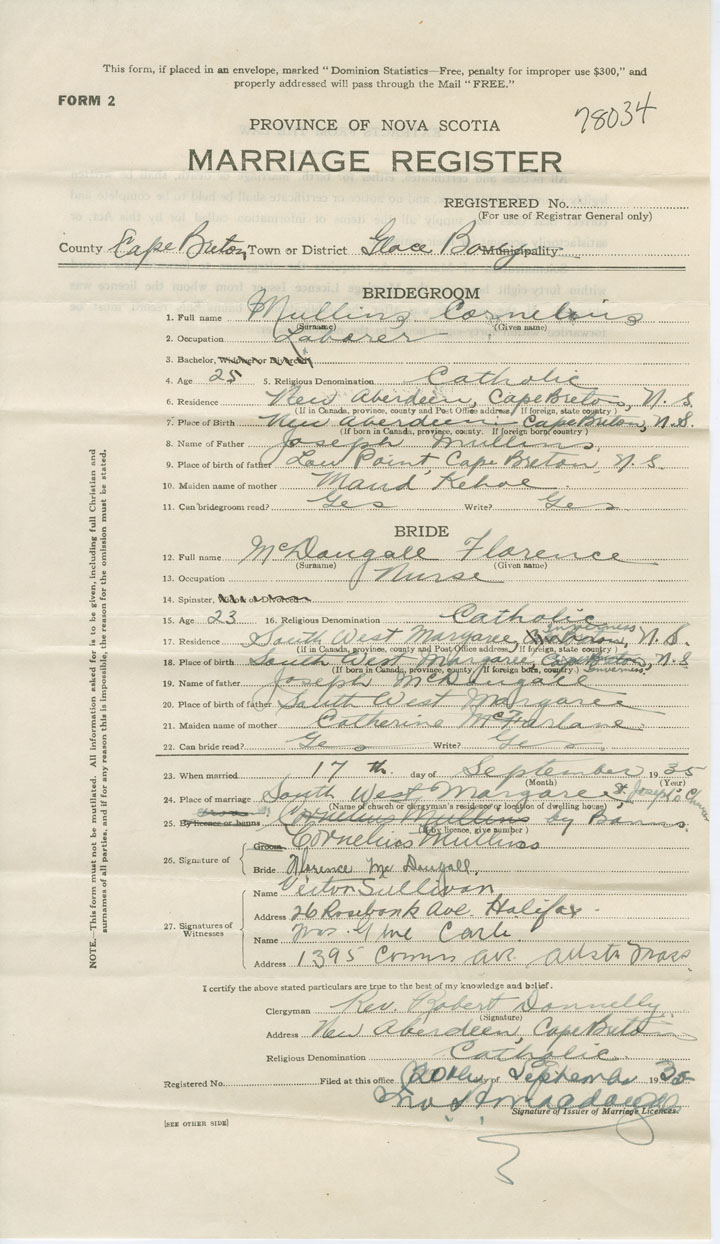 This form, if placed in an envelope, marked “Dominion Statistics—Free, penalty for improper use $300,” and
properly addressed will pass through the Mail “FREE.”
FORM 2
78034
PROVINCE OF NOVA SCOTIA
MARRIAGE REGISTER
REGISTERED No.
(For use of Registrar General only)
County Cape Breton Town or District Glace Bay Municipality
BRIDEGROOM
1. Full name Mullins Cornelius
(Surname) (Given name)
2. Occupation Laborer
3. Bachelor, Widower or Divorced
4. Age 25 5. Religious Denomination Catholic
6. Residence New Aberdeen, Cape Breton, N. S.
(If in Canada, province, county and Post Office address. If foreign, state country)
7. Place of Birth New Aberdeen Cape Breton, N.S.
(If born in Canada, province, county. If foreign born, country)
8. Name of Father Joseph Mullins
9. Place of birth of father Low Point, Cape Breton, N.S.
10. Maiden name of mother Maud Kehoe
11. Can bridegroom read? Yes Write? Yes
BRIDE
12. Full name McDougall Florence
(Surname) (Given name)
13. Occupation Nurse
14. Spinster, Widow or Divorcee
15. Age 23 16. Religious Denomination Catholic
Inverness
17. Residence South West Margaree, N. S.
(If in Canada, province, county and Post Office address. If foreign, state country)
18. Place of birth South West Margaree, Cape Breton, N.S
(If born in Canada, province, county. If foreign born, country) Inverness
19. Name of father Joseph McDougall
20. Place of birth of father South West Margaree
21. Maiden name of mother Catherine McFarlane
22. Can bride read? Yes Write? Yes
23. When married 17th. day of September 1935
(Month) (Year)
24. Place of marriage South West Margaree St. Joseph's Church
(Name of church or clergyman's residence or location of dwelling house)
25. By licence or banns Cornelius Mullins by Banns.
(If by licence, give number)
26. Signature of
Groom Cornelius Mullins
Bride Florence McDougall
27. Signatures of Witnesses
Name Sullivan
Address 26 Rosebank Ave. Halifax.
Name Mrs.
Address 1395 Comm Ave. Mass.
I certify the above stated particulars are true to the best of my knowledge and belief.
Clergyman Rev. Robert Donnelly
(Signature)
Address New Aberdeen, Cape Breton
Religious Denomination Catholic
Registered No. Filed at this office 20th day of September 1935
Signature of Issuer of Marriage Licences.
[SEE OTHER SIDE]
NOTE.—This form must not be mutilated. All information asked for is to be given, including full Christian and
surnames of all parties, and if for any reason this is impossible, the reason for the omission must be stated.